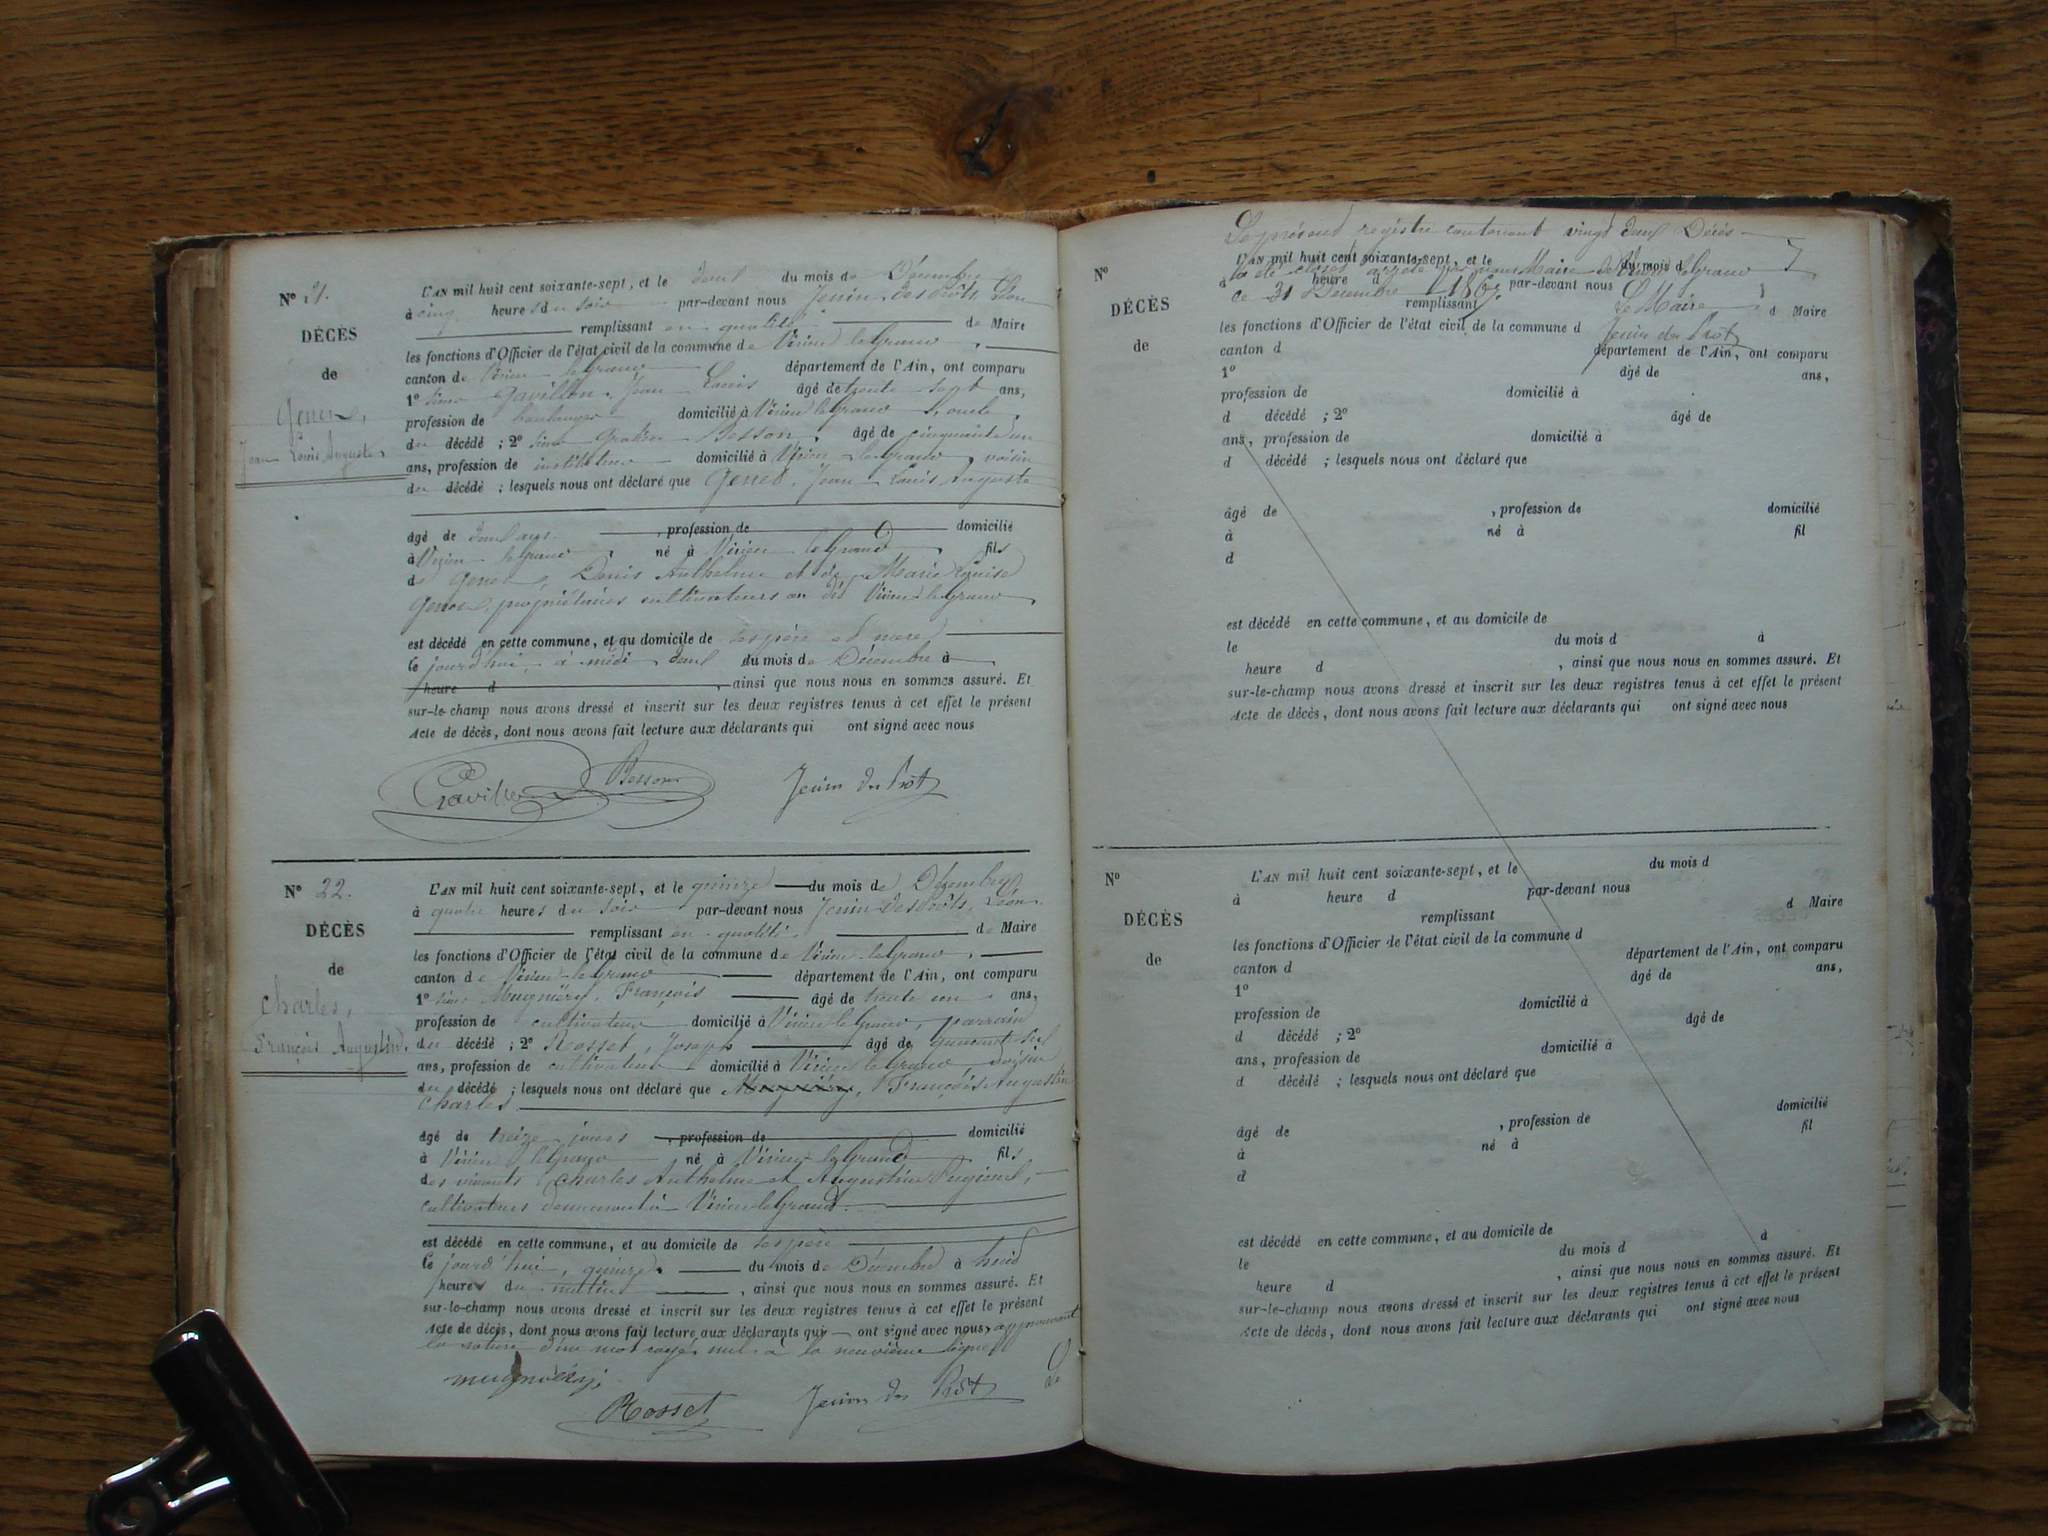 N° 21.
DÉCÈS
de
Genet,
Jean Louis Auguste
L'AN mil huit cent soixante-sept, et le deux du mois de Décembre
à cinq heures du soir par-devant nous Jenin des Prôts, Léon
remplissant en qualité de Maire
les fonctions d'Officier de l'état civil de la commune de Virieu le Grand,
canton de Virieu le Grand département de l'Ain, ont comparu
1° sieur Gavillon, Jean Louis âgé de trente sept ans,
profession de boulanger domicilié à Virieu le Grand, oncle
du décédé ; 2° sieur Besson, âgé de cinquante un
ans, profession de instituteur domicilié à Virieu le Grand, voisin
du décédé ; lesquels nous ont déclaré que Genet, Jean Louis Auguste
âgé de deux ans , profession de domicilié
à Virieu le Grand né à Virieu le Grand, fils
de Genet, Denis Anthelme et de Marie Louise
Genet, propriétaires cultivateurs au dit Virieu le Grand,
est décédé en cette commune, et au domicile de ses père et mère
le jourd'hui à midi deux du mois de Décembre à
heure d , ainsi que nous nous en sommes assuré. Et
sur-le-champ nous avons dressé et inscrit sur les deux registres tenus à cet effet le présent
Acte de décès, dont nous avons fait lecture aux déclarants qui ont signé avec nous
Gavillon Besson Jenin des Prôts
N° 22.
DÉCÈS
de
Charles,
François Augustin.
L'AN mil huit cent soixante-sept, et le quinze du mois de Décembre
à quatre heures du soir par-devant nous Jenin des Prôts, Léon
remplissant en qualité de Maire
les fonctions d'Officier de l'état civil de la commune de Virieu le Grand,
canton de Virieu le Grand département de l'Ain, ont comparu
1° sieur Mugniéry, François âgé de trente un ans,
profession de cultivateur domicilié à Virieu le Grand, parrain
du décédé ; 2° Rosset, Joseph âgé de
ans, profession de cultivateur domicilié à Virieu le Grand voisin
du décédé ; lesquels nous ont déclaré que Mugniéry, François Augustin
Charles
âgé de treize jours , profession de domicilié
à Virieu le Grand né à Virieu le Grand fils
des vivants Charles Anthelme et Augustine
cultivateurs demeurant à Virieu le Grand.
est décédé en cette commune, et au domicile de ses père
le jourd'hui, quinze du mois de Décembre à huit
heures du matin , ainsi que nous nous en sommes assuré. Et
sur-le-champ nous avons dressé et inscrit sur les deux registres tenus à cet effet le présent
Acte de décès, dont nous avons fait lecture aux déclarants qui ont signé avec nous, approuvant
la rature d'un mot rayé nul à la neuvième ligne
mugniéry
Rosset Jenin des Prôts
Le présent registre contenant vingt deux Décès
a été clos et arrêté par nous Maire de Virieu le Grand
ce 31 Décembre 1867.
Le Maire
Jenin des Prôts
N°
DÉCÈS
de
L'AN mil huit cent soixante-sept, et le du mois d
à heure d par-devant nous
remplissant d Maire
les fonctions d'Officier de l'état civil de la commune d
canton d département de l'Ain, ont comparu
1° âgé de ans,
profession de domicilié à
d décédé ; 2° âgé de
ans, profession de domicilié à
d décédé ; lesquels nous ont déclaré que
âgé de , profession de domicilié
à né à fil
d
est décédé en cette commune, et au domicile de
le du mois d à
heure d , ainsi que nous nous en sommes assuré. Et
sur-le-champ nous avons dressé et inscrit sur les deux registres tenus à cet effet le présent
Acte de décès, dont nous avons fait lecture aux déclarants qui ont signé avec nous
N°
DÉCÈS
de
L'AN mil huit cent soixante-sept, et le du mois d
à heure d par-devant nous
remplissant d Maire
les fonctions d'Officier de l'état civil de la commune d
canton d département de l'Ain, ont comparu
1° âgé de ans,
profession de domicilié à
d décédé ; 2° âgé de
ans, profession de domicilié à
d décédé ; lesquels nous ont déclaré que
âgé de , profession de domicilié
à né à fil
d
est décédé en cette commune, et au domicile de
le du mois d à
heure d , ainsi que nous nous en sommes assuré. Et
sur-le-champ nous avons dressé et inscrit sur les deux registres tenus à cet effet le présent
Acte de décès, dont nous avons fait lecture aux déclarants qui ont signé avec nous